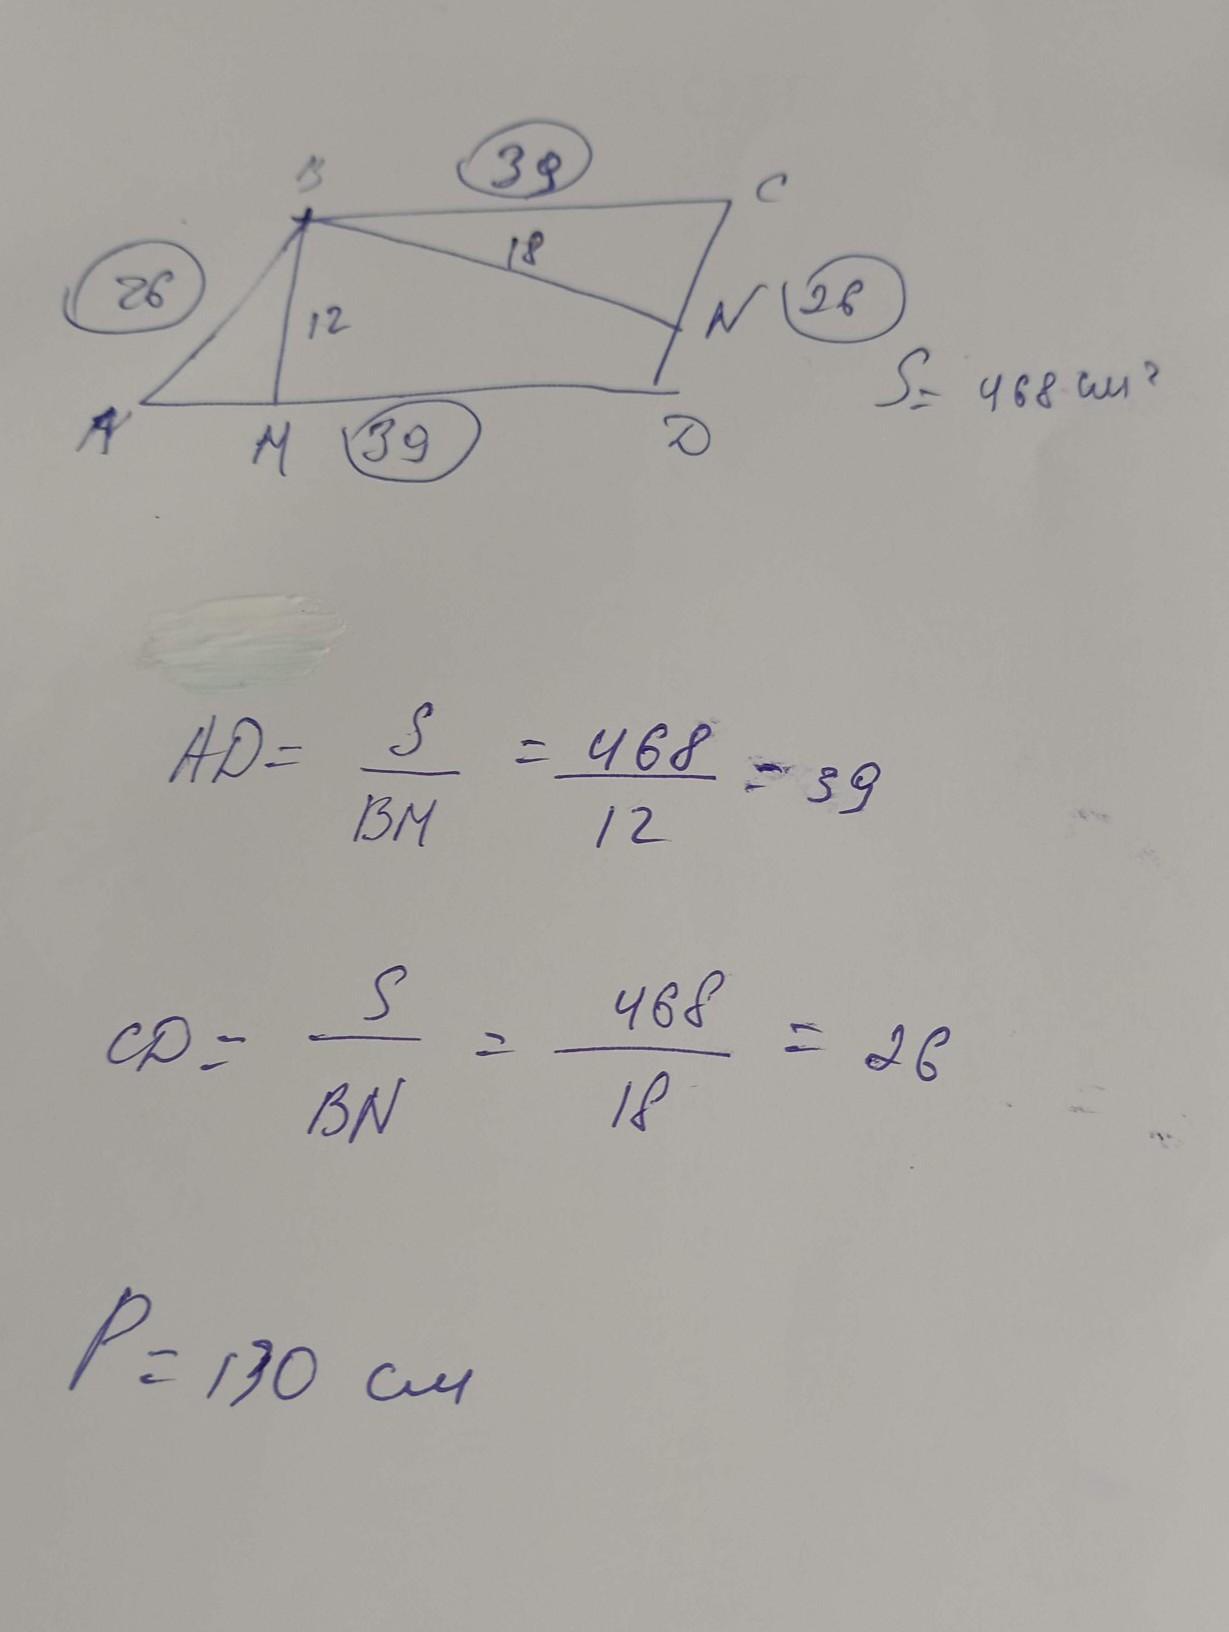 B
39
C
26
18
12
N
26
S= 468 см²
A
M
39
D
AD= S/BM = 468/12 = 39
CD= S/BN = 468/18 = 26
P= 130 см